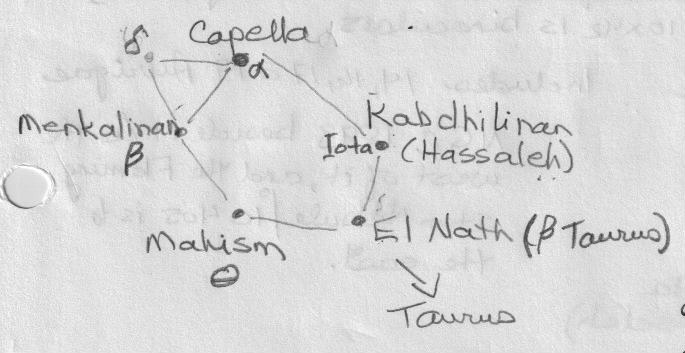 δ
Capella
α
Menkalinan
β
Kabdhilinan
Iota (Hassaleh)
Mahism
θ
El Nath (β Taurus)
Taurus